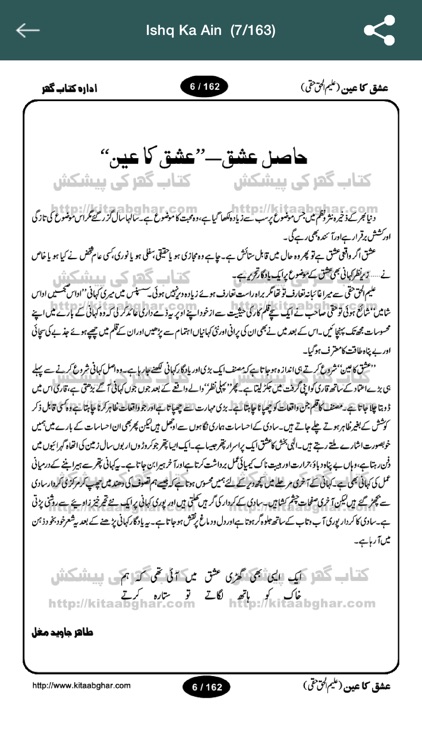 Ishq Ka Ain (7/163)
عشق کا عین (علیم الحق حقی) 6 / 162 ادارہ کتاب گھر
حاصل عشق—”عشق کا عین“
کتاب گھر کی پیشکش کتاب گھر کی پیشکش
http://kitaabghar.com http://kitaabghar.com
دنیا بھر کے ذخیرہ نثر و نظم میں جس موضوع پر سب سے زیادہ لکھا گیا ہے، وہ محبت کا موضوع ہے۔ سالہا سال گزر گئے مگر اس موضوع کی تازگی
اور کشش برقرار ہے اور آئندہ بھی رہے گی۔
عشق اگر واقعی عشق ہے تو پھر وہ ہر حال میں قابل ستائش ہے۔ چاہے وہ مجازی ہو یا حقیقی، سفلی ہو یا نوری، کسی عام شخص نے کیا ہو یا خاص
نے...... زیر نظر کہانی بھی عشق کے موضوع پر ایک یادگار تحریر ہے۔
علیم الحق حقی سے میرا غائبانہ تعارف تو تھا مگر براہ راست تعارف ہوئے زیادہ دیر نہیں ہوئی۔ سسپنس میں میری کہانی ”اداس شامیں
محسوسات مجھ تک پہنچائیں۔ اس کے بعد میں نے بھی ان کی پرانی اور نئی کہانیاں اہتمام سے پڑھیں اور ان کے قلم میں چھپے ہوئے جذبے کی سچائی
اور بے پناہ طاقت کا معترف ہو گیا۔
”عشق کا عین“ شروع کرتے ہی اندازہ ہو جاتا ہے کہ مصنف ایک بڑی اور یادگار کہانی لکھنے جا رہا ہے۔ وہ اصل کہانی شروع کرنے سے پہلے
ہی بڑے اعتماد کے ساتھ قاری کو اپنی گرفت میں جکڑ لیتا ہے۔ پھر ”پہلی نظر“ والے واقعے کے بعد جوں جوں کہانی آگے بڑھتی ہے، قاری اس میں
ڈوبتا چلا جاتا ہے۔ مصنف کا قلم جن واقعات کو چھپانا چاہتا ہے۔ بڑی مہارت سے چھپاتا ہے اور جو واقعات ظاہر کرنا چاہتا ہے وہ کسی قابل ذکر
کوشش کے بغیر ظاہر ہوتے چلے جاتے ہیں۔ سادی کے احساسات ہماری نگاہوں سے اوجھل ہیں لیکن پھر بھی ان احساسات کے بارے میں ہمیں
خوبصورت اشارے ملتے رہتے ہیں۔ الٰہی بخش کا عشق ایک پراسرار پتھر جیسا ہے۔ ایک ایسا پتھر جو کروڑوں اربوں سال زمین کی اتھاہ گہرائیوں میں
دفن رہتا ہے، وہاں بے پناہ دباؤ، حرارت اور ہیبت ناک کیمیائی عمل برداشت کرتا ہے اور آخر ہیرا بن جاتا ہے۔ یہ کہانی پتھر سے ہیرا بننے کے درمیانی
عمل کی کہانی بھی ہے۔ کہانی کے آخری مرحلے میں کچھ دیر کے لئے ہمیں محسوس ہوتا ہے کہ جیسے ہم تصوف کی دھند میں چھپ کر مرکزی کردار سادی
سے بچھڑ گئے ہیں لیکن آخری صفحات چشم کشا ہیں۔ سادی کے کردار کی گرہیں کھلتی ہیں اور پوری کہانی پر ایک نئے تحیر خیز زاویے سے روشنی پڑتی
ہے۔ سادی کا کردار پوری آب و تاب کے ساتھ جلوہ گر ہوتا ہے اور دل و دماغ پر نقش ہو جاتا ہے۔ یہ یادگار کہانی پڑھنے کے بعد یہ شعر خود بخود ذہن
میں آ رہا ہے۔
کتاب گھر کی پیشکش کتاب گھر کی پیشکش
ایک ایسی بھی گھڑی عشق میں آئی تھی کہ ہم
خاک کو ہاتھ لگاتے تو ستارہ کرتے
http://kitaabghar.com http://kitaabghar.com
طاہر جاوید مغل
http://www.kitaabghar.com 6 / 162 عشق کا عین (علیم الحق حقی)